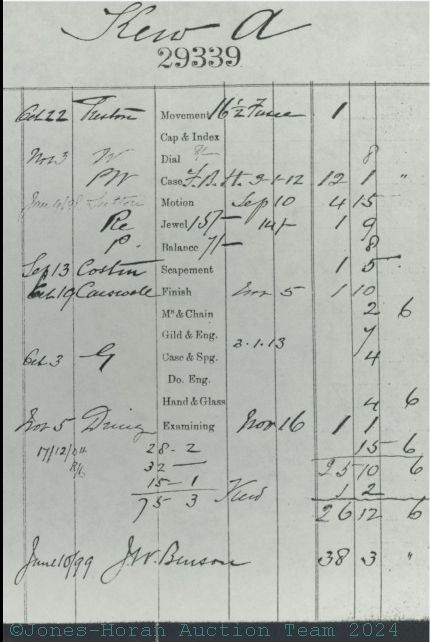 Kew A
29339
Oct 22 Preston Movement 16 1/2 Fusee 1
Cap & Index
Nov 3 W Dial 8/- 8
PW Case F.B. St. 2-1-12 12 1 "
Motion Sep 10 4 15
Re Jewel 15/- 14/- 1 9
P. Balance 7/- 8
Sep 13 Costin Scapement 1 5
Oct 19 Finish Nov 5 1 10
Mg & Chain 2 6
Gild & Eng. 2.1.13 7
Oct 3 G Case & Spg. 4
Do. Eng.
Hand & Glass 4 6
Nov 5 Examining Nov 16 1 1
17/12/94 28-2 15 6
32 — 25 10 6
15-1 Kew 1 2
75 3 26 12 6
June 10/99 J.W. Benson 38 3 "
©Jones-Horan Auction Team 2024